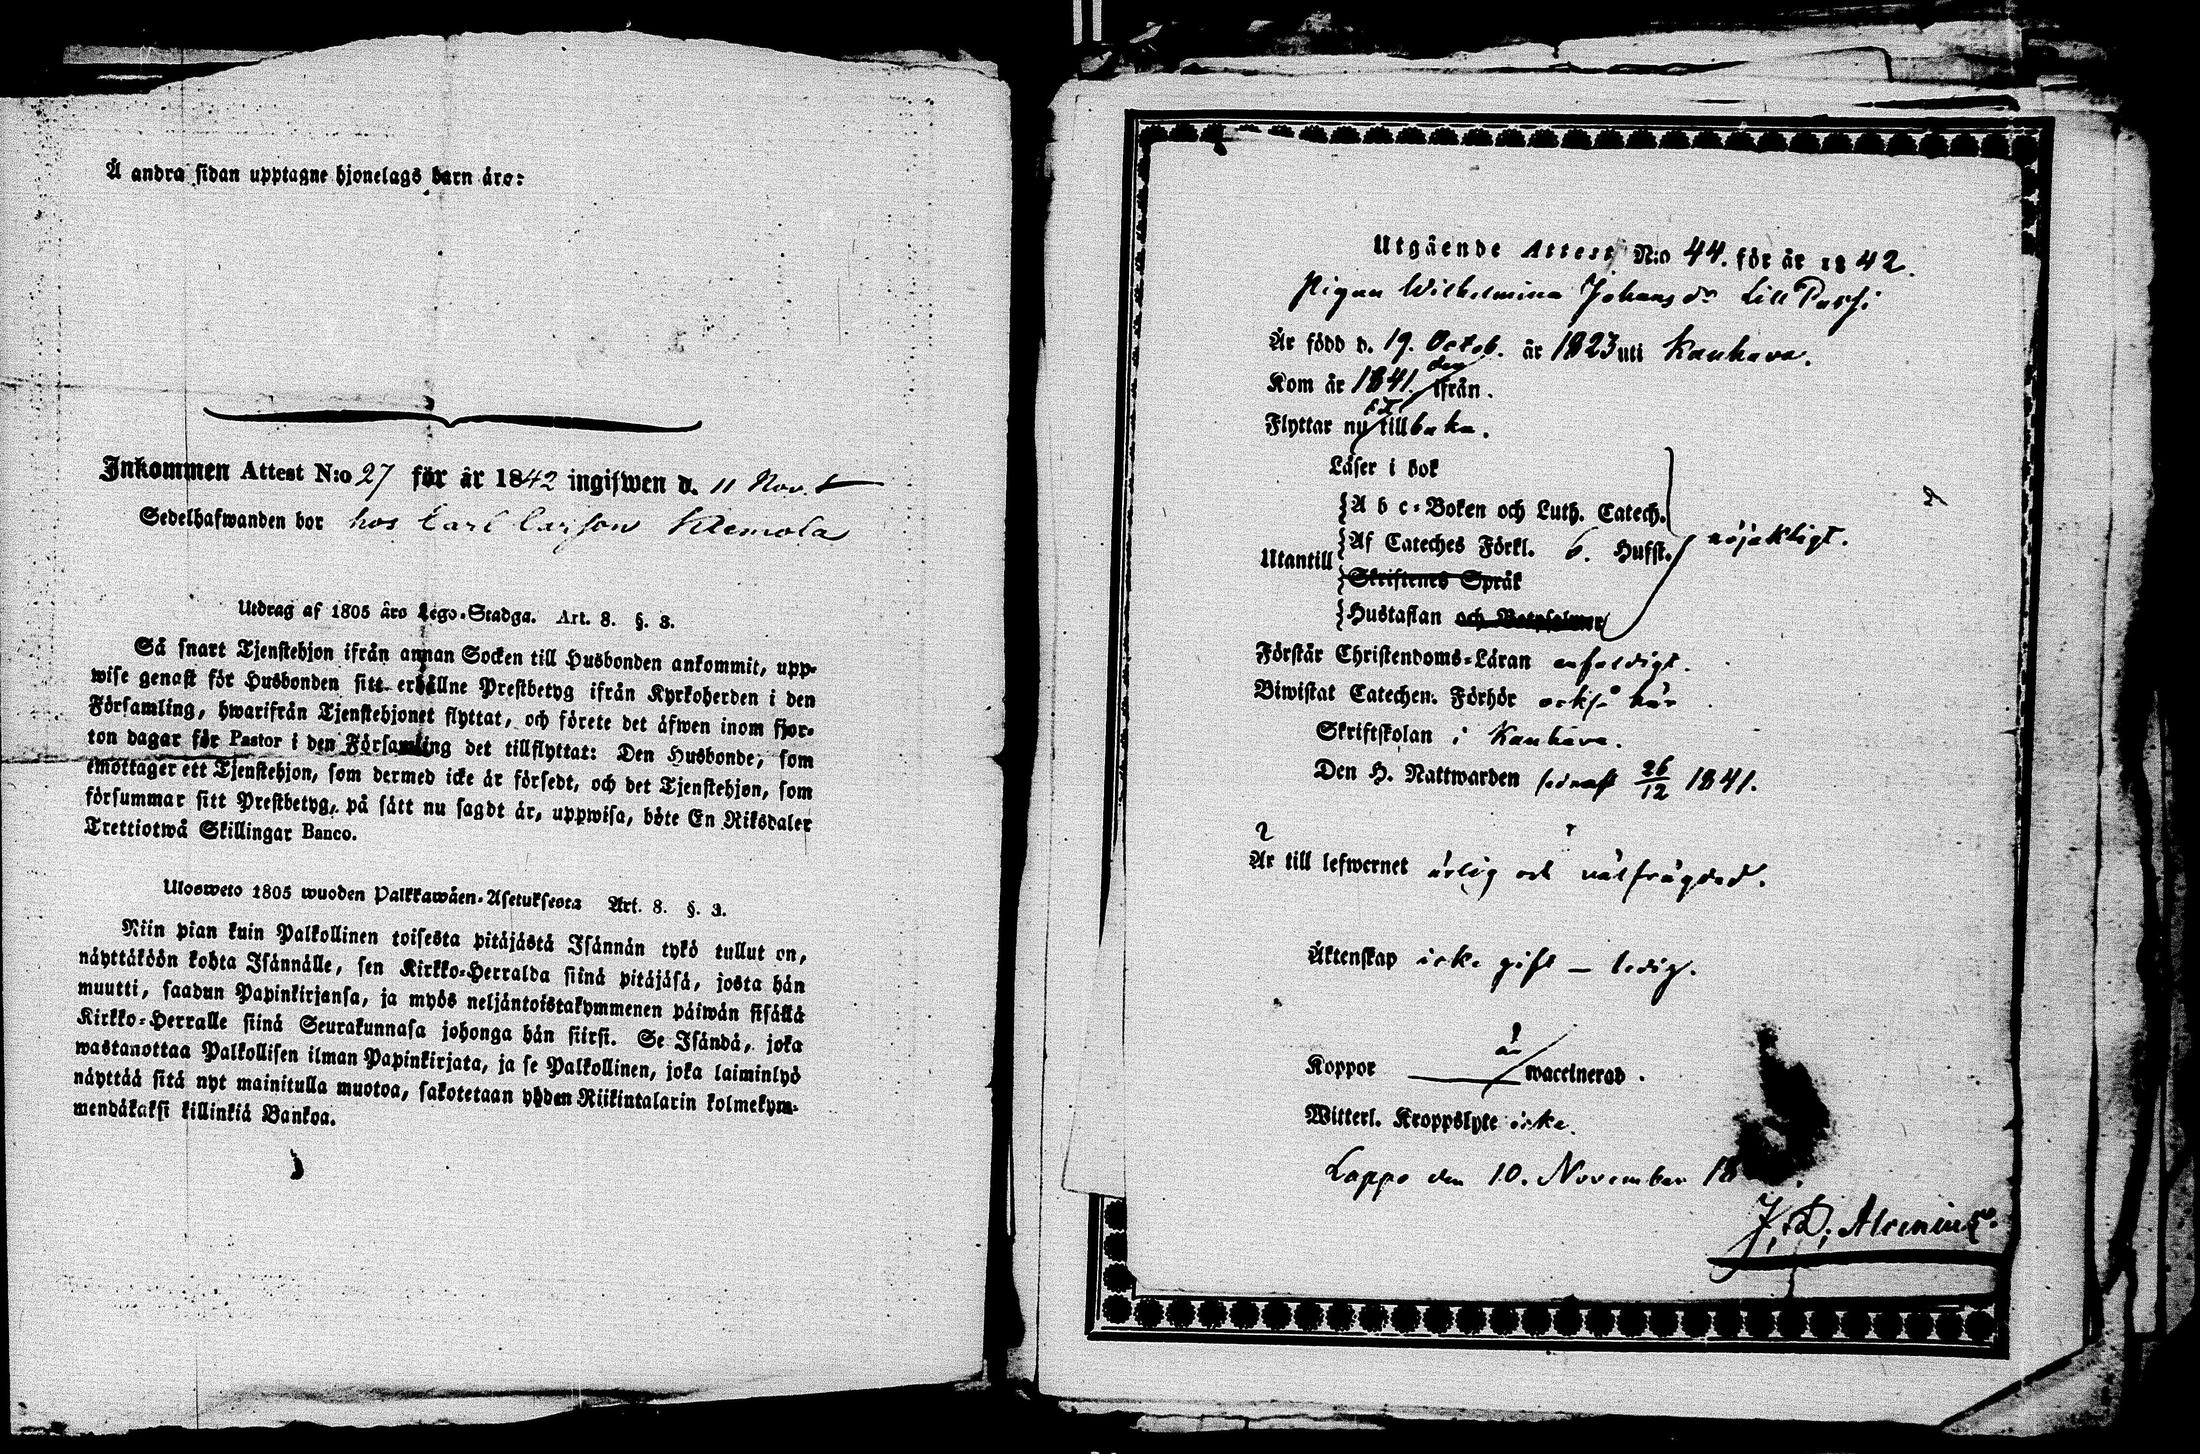 Å andra sidan upptagne hjonelags barn äro:
Inkommen Attest N:o 27 för år 1842 ingifwen d. 11 Nov.
Sedelhafwanden bor hos Carl Carlson Klemola
Utdrag af 1805 års Lego-Stadga. Art. 8. §. 3.
Så snart Tjenstehjon ifrån annan Socken till Husbonden ankommit, upp-
wise genast för Husbonden sitt erhållne Prestbetyg ifrån Kyrkoherden i den
Församling, hwarifrån Tjenstehjonet flyttat, och förete det äfwen inom fjor-
ton dagar för Pastor i den Församling det tillflyttat: Den Husbonde, som
emottager ett Tjenstehjon, som dermed icke är försedt, och det Tjenstehjon, som
försummar sitt Prestbetyg, på sätt nu sagdt är, uppwisa, böte En Riksdaler
Trettiotwå Skillingar Banco.
Ulosweto 1805 wuoden Palkkawäen-Asetuksesta Art. 8. §. 3.
Niin pian kuin Palkollinen toisesta pitäjästä Isännän tykö tullut on,
näyttäköön kohta Isännälle, sen Kirkko-Herralda siinä pitäjäsä, josta hän
muutti, saadun Papinkirjansa, ja myös neljäntoistakymmenen päiwän sisällä
Kirkko-Herralle siinä Seurakunnasa johonga hän siirsi. Se Isändä, joka
wastanottaa Palkollisen ilman Papinkirjata, ja se Palkollinen, joka laiminlyö
näyttää sitä nyt mainitulla muotoa, sakotetaan yhden Riikintalarin kolmekym-
mendäkaksi killinkiä Bankoa.
Utgående Attest N:o 44. för år 1842.
Pigan Wilhelmina Johansdr Lill Passi
Är född d. 19. Octob. år 1823 uti Kauhava.
Kom år 1841. der ifrån.
Flyttar nu dit tillbaka.
Läser i bok
A b c-Boken och Luth. Catech.
Utantill Af Cateches Förkl. 6. Hufst. nöjaktigt.
Skriftenes Språk
Hustaflan och Botpsalmer
Förstår Christendoms-Läran enfaldigt.
Biwistat Catechem. Förhör också här
Skriftskolan i Kauhava.
Den H. Nattwarden sednast 26/12 1841.
Är till lefwernet ärlig och välfrägdad.
Äktenskap icke gift – ledig.
Koppor är waccinerad.
Witterl. Kroppslyte icke.
Lappo den 10. November 18
J. D. Alcenius.